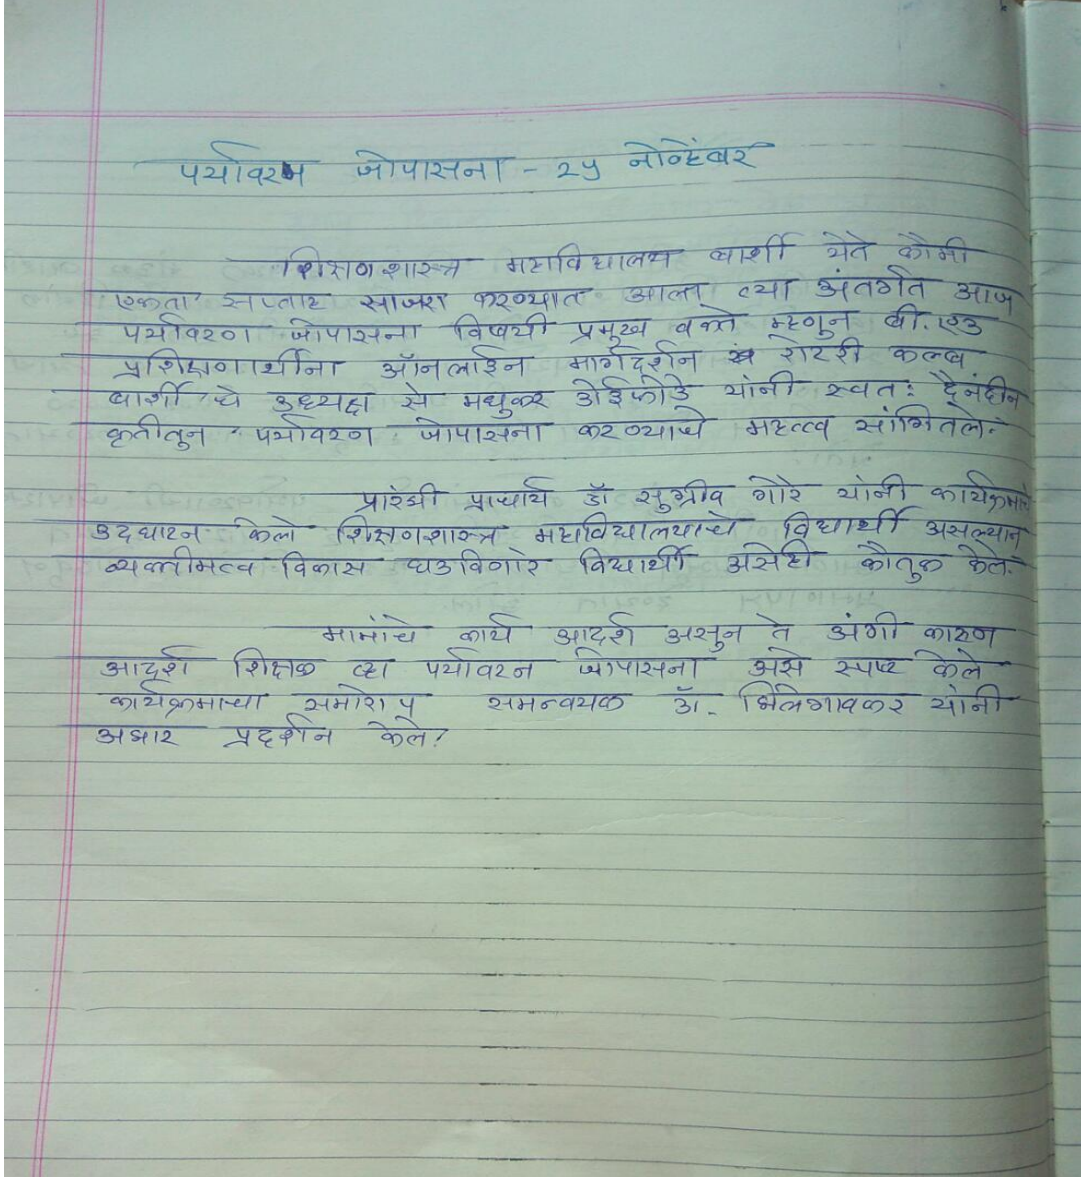 पर्यावरण जोपासना - २५ नोव्हेंबर
शिक्षणशास्त्र महाविद्यालय बार्शी येते कौमी
एकता सप्ताह साजरा करण्यात आला त्या अंतर्गत आज
पर्यावरण जोपासना विषयी प्रमुख वक्ते म्हणुन बी.एड
प्रशिक्षणार्थीना ऑनलाईन मार्गदर्शन रोटरी कल्ब
बार्शी चे अध्यक्ष से मधुकर डोईफोडे यांनी स्वतः दैनंदीन
कृतीतुन पर्यावरण जोपासना करण्याचे महत्त्व सांगितले.
प्रारंभी प्राचार्य डॉ सुग्रीव गोरे यांनी कार्यक्रमाचे
उदघाटन केले शिक्षणशास्त्र महाविद्यालयाचे विद्यार्थी असल्यान
व्यक्तीमत्व विकास घडविणारे विद्यार्थी असेही कौतुक केले.
मामांचे कार्य आदर्श असुन ते अंगी कारुण
आदर्श शिक्षक व्हा पर्यावरन जोपासना असे स्पष्ट केले
कार्यक्रमाचा समारोप समन्वयक डॉ. भिलेगावकर यांनी
अभार प्रदर्शन केले?